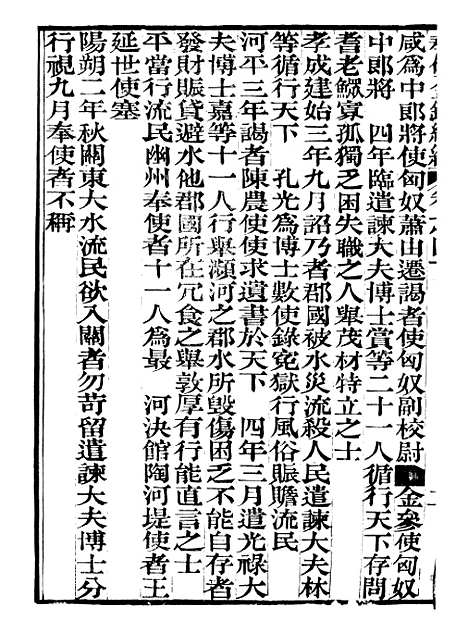 咸爲中郎將使匈奴蕭由遷謁者使匈奴副校尉 金參使匈奴
中郎將 四年臨遣諫大夫博士賞等二十一人循行天下存問
耆老鰥寡孤獨乏困失職之人舉茂材特立之士
孝成建始三年九月詔乃者郡國被水災流殺人民遣諫大夫林
等循行天下 孔光爲博士數使錄寃獄行風俗賑贍流民
河平三年謁者陳農使使求遺書於天下 四年三月遣光祿大
夫博士嘉等十一人行舉瀕河之郡水所毀傷困乏不能自存者
發財賑貸避水他郡國所在冗食之舉敦厚有行能直言之士
平當行流民幽州奉使者十一人爲最 河決館陶河堤使者王
延世使塞
陽朔二年秋關東大水流民欲入關者勿苛留遣諫大夫博士分
行視九月奉使者不稱